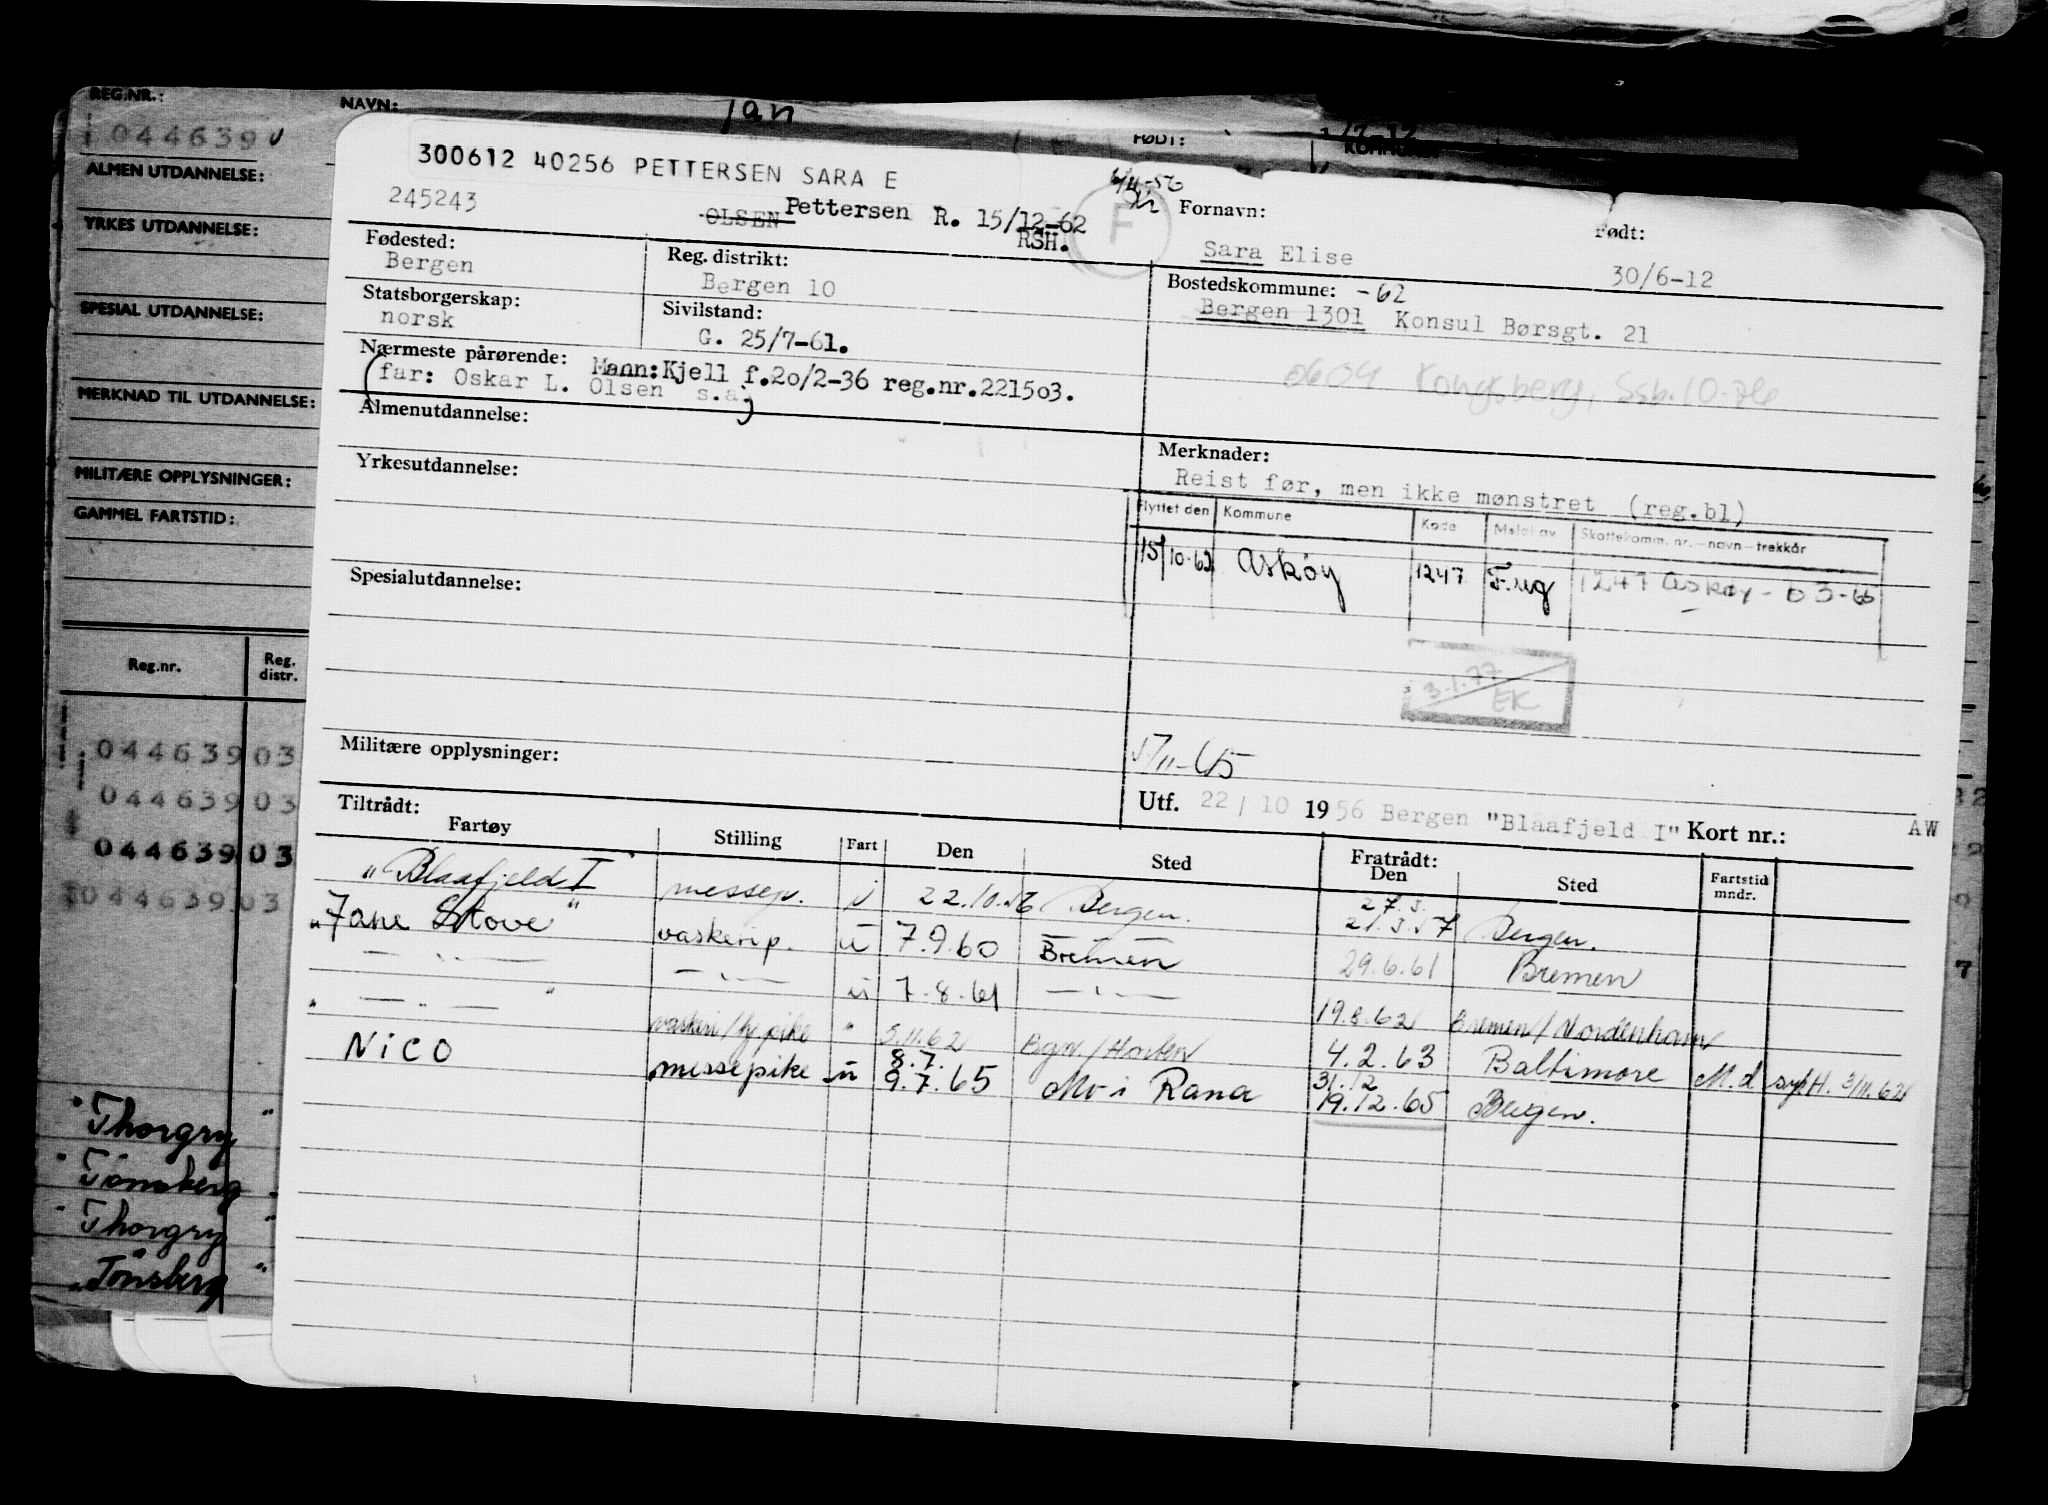 REG.NR.: NAVN: FØDT: KOMMUNE:
044639
ALMEN UTDANNELSE:
YRKES UTDANNELSE:
SPESIAL UTDANNELSE:
MERKNAD TIL UTDANNELSE:
MILITÆRE OPPLYSNINGER:
GAMMEL FARTSTID:
Reg.nr. Reg. distr.
044639 03
044639 03
044639 03
044639 03
" Thorgry "
" Tönsberg "
" Thorgry "
" Tönsberg "
300612 40256 PETTERSEN SARA E
245243 OLSEN Pettersen R. 15/12-62
RSH.
F
Fornavn: Født:
Sara Elise 30/6-12
Fødested: Reg. distrikt: Bostedskommune: -62
Bergen Bergen 10 Bergen 1301 Konsul Børsgt. 21
Statsborgerskap: Sivilstand:
norsk G. 25/7-61.
0604 Kongsberg, Ssb.10-76
Nærmeste pårørende: Mann: Kjell f.20/2-36 reg.nr.221503.
(far: Oskar L. Olsen s.a)
Almenutdannelse:
Merknader:
Yrkesutdannelse:
Reist før, men ikke mønstret (reg.bl)
Flyttet den Kommune Kode Meldt av Skattekomm. nr.-navn-trekkår
15/10-62 Askøy 1247 F.reg 1247 Askøy - 03-65
Spesialutdannelse:
3.1.77
EK
Militære opplysninger:
5/11-65
Utf. 22/10 1956 Bergen "Blaafjeld I" Kort nr.: AW
Tiltrådt: Fratrådt:
Fartøy Stilling Fart Den Sted Den Sted Fartstid mndr.
"Blaafjeld I" messep. u 22.10.56 Bergen. 27.3. 21.3.57 Bergen.
"Jane Stove" vaskerip. u 7.9.60 Bremen 29.6.61 Bremen
— " — — " — u 7.8.61 — " — 19.8.62 Bremen/Nordenham
" — " — " vaskeri/ pike " 5.11.62 Bgn/Horten 4.2.63 Baltimore M.d syk H. 3/11.62
Nico messepike u 8.7. 9.7.65 Mo i Rana 31.12 19.12.65 Bergen.